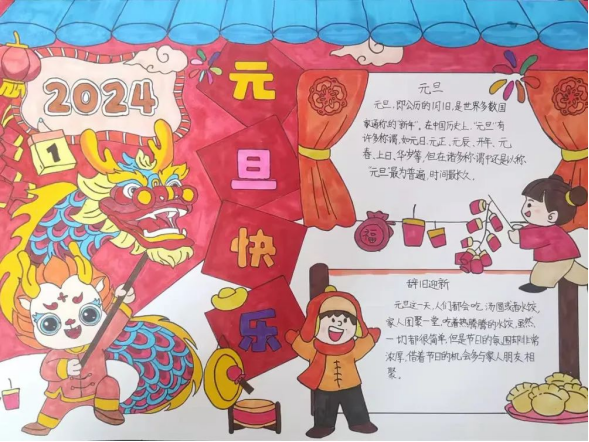 2024
1
元
旦
快
乐
元旦
元旦，即公历的1月1日，是世界多数国
家通称的"新年"。在中国历史上，"元旦"有
许多称谓，如元日、元正、元辰、开年、元
春、上日、华岁等，但在诸多称谓中还是以称
"元旦"最为普遍，时间最长久。
福
辞旧迎新
元旦这一天，人们都会吃汤圆或者水饺，
家人团聚一堂，吃着热腾腾的水饺，虽然
一切都很简单，但是节日的氛围却非常
浓厚，借着节日的机会多与家人朋友相
聚。